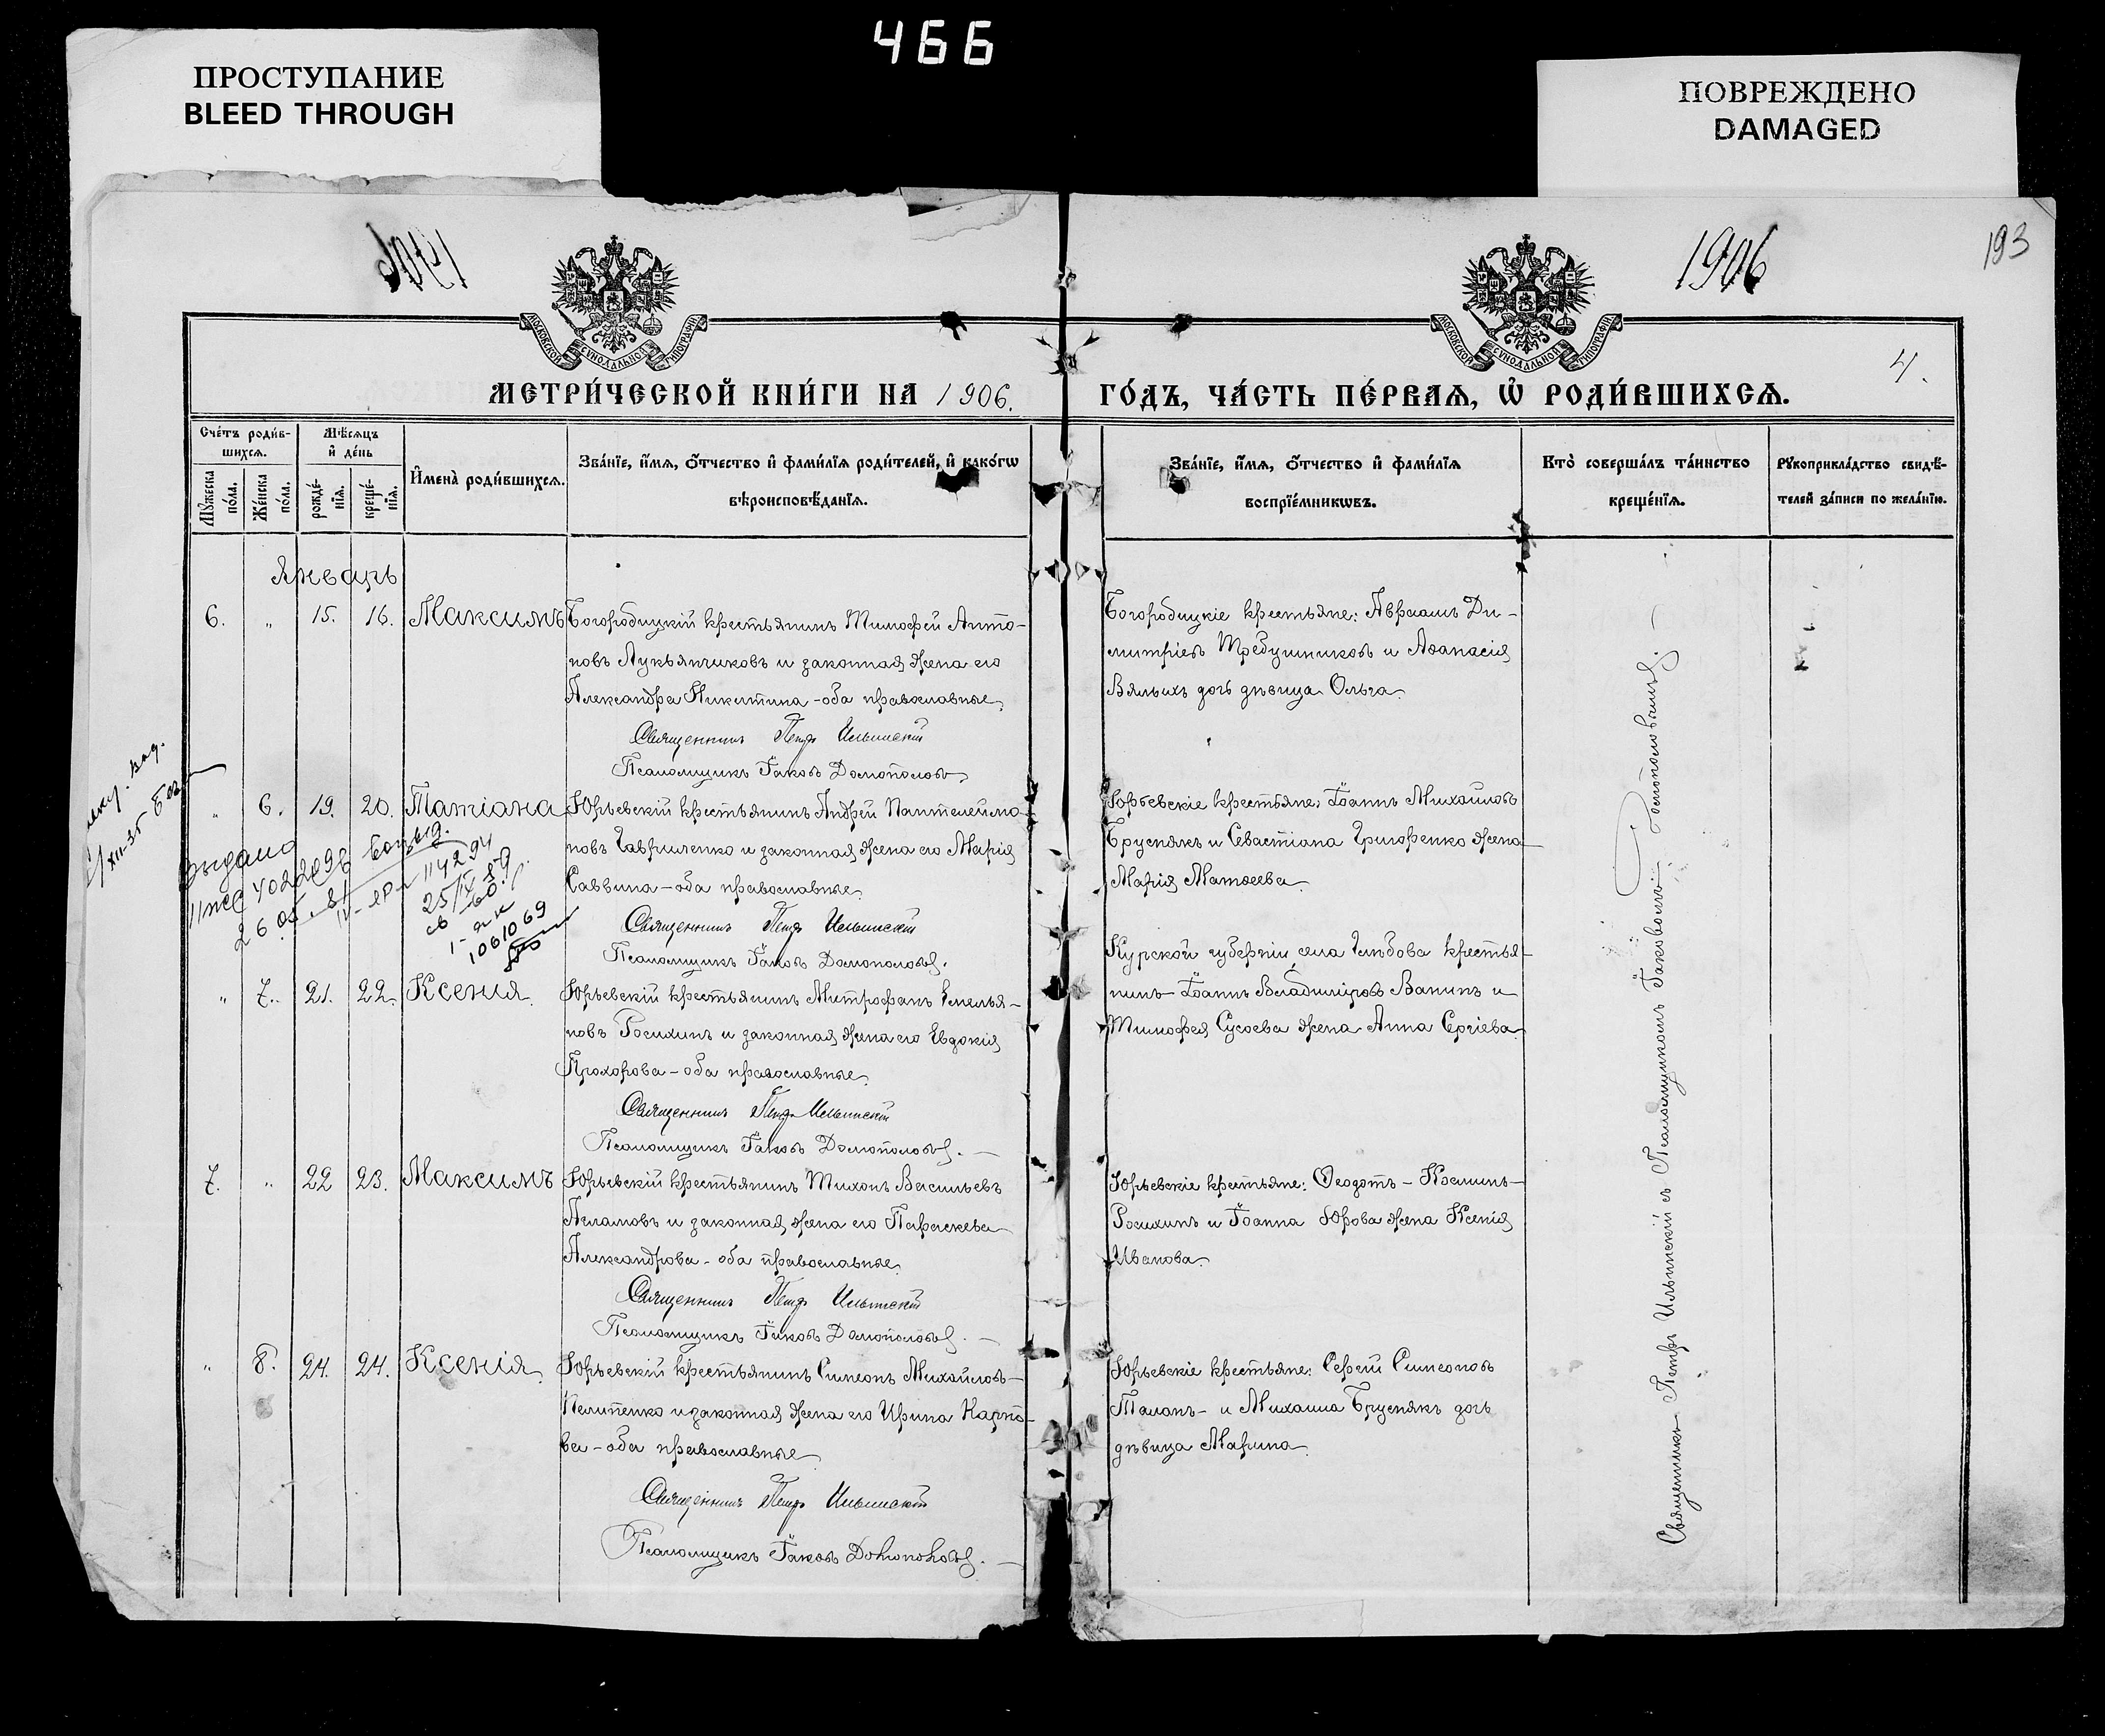 466
ПРОСТУПАНИЕ
BLEED THROUGH
ПОВРЕЖДЕНО
DAMAGED
1906
193
МОСКОВСКОЙ СУНОДАЛЬНОЙ ТИПОГРАФІИ
МОСКОВСКОЙ СУНОДАЛЬНОЙ ТИПОГРАФІИ
4.
МЕТРИ́ЧЕСКОЙ КНИ́ГИ НА 1906.
ГО́ДЪ, ЧА́СТЬ ПЕ́РВАѦ, Ѡ РОДИ́ВШИХСѦ.
Сче́тъ роди́в-
шихсѧ.
Мѣ́сѧцъ
и де́нь
Мꙋ́жеска по́ла.
Же́нска по́ла.
рожде́-нїѧ.
креще́-нїѧ.
И҆мена̀ роди́вшихсѧ.
Зва́нїе, и҆́мѧ, ѻ҆́тчество и҆ фами́лїѧ роди́телей, и҆ како́гѡ
вѣроисповѣ́данїѧ.
Зва́нїе, и҆́мѧ, ѻ҆́тчество и҆ фами́лїѧ
воспрїе́мникѡвъ.
Кто̀ соверша́лъ та́инство
креще́нїѧ.
Рꙋкоприкла́дство свидѣ́-
телей за́писи по жела́нїю.
Январь
6. " 15. 16. Максимъ
Богородицкій крестьянинъ Тимофей Анто-
новъ Лукьянчиковъ и законная жена его
Александра Никитина - оба православные
Священникъ Петръ Ильинскій
Псаломщикъ Іаковъ Домополовъ
Богородицкіе крестьяне: Авраамъ Ди-
митріевъ Требушниковъ и Аѳанасія
Вялыхъ дочь дѣвица Ольга.
" 6. 19. 20. Татіана
Юрьевскій крестьянинъ Андрей Пантелеймо-
новъ Гавриленко и законная жена его Марія
Саввина - оба православные.
Священникъ Петръ Ильинскій
Псаломщикъ Іаковъ Домополовъ.
Юрьевскіе крестьяне: Іоаннъ Михайловъ
Бруснякъ и Севастіана Григоренко жена
Марія Матѳеева.
Выдано
114294
1061069
" 7. 21. 22. Ксенія
Юрьевскій крестьянинъ Митрофанъ Емелья-
новъ Росихинъ и законная жена его Евдокія
Прохорова - оба православные.
Священникъ Петръ Ильинскій
Псаломщикъ Іаковъ Домополовъ.
Курской губерніи села Глѣбова крестья-
нинъ Іоаннъ Владиміровъ Ванинъ и
Тимофея Сусоева жена Анна Сергіева.
7. " 22 23. Максимъ
Юрьевскій крестьянинъ Тихонъ Васильевъ
и законная жена его Параскева
Александрова - оба православные.
Священникъ Петръ Ильинскій
Псаломщикъ Іаковъ Домополовъ.
Юрьевскіе крестьяне: Ѳеодотъ Косминъ
Росихинъ и Іоанна Юрова жена Ксенія
Иванова.
" 8. 24. 24. Ксенія
Юрьевскій крестьянинъ Симеонъ Михайловъ
Пелипенко и законная жена его Ирина Карпо-
ва - оба православные
Священникъ Петръ Ильинскій
Псаломщикъ Іаковъ Домополовъ.
Юрьевскіе крестьяне: Сергій Симеоновъ
Таланъ и Михаила Бруснякъ дочь
дѣвица Марина.
Священникъ Петръ Ильинскій съ Псаломщикомъ Іаковомъ